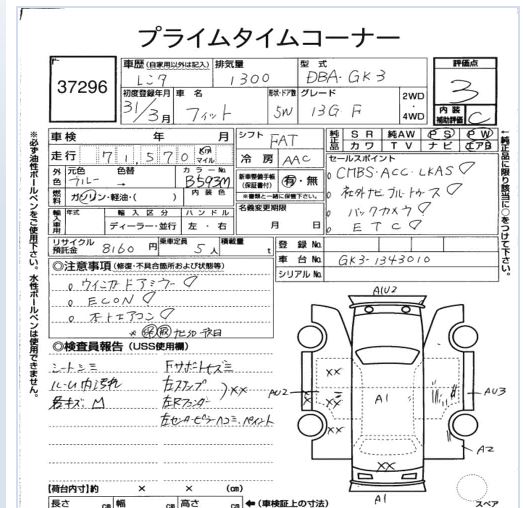 プライムタイムコーナー
37296
車歴 (自家用以外は記入) レンタ
排気量 1300
型式 DBA-GK3
評価点 3
初度登録年月 31/3月
車名 フィット
形状・ドア数 5W
グレード 13G F
2WD・4WD
内装補助評価 C
車検 年 月
走行 71,570 km マイル
シフト FAT
純正品 SR 純AW PS PW
カワ TV ナビ エアB
外色 元色 ブルー → 色替 カラーNo. B593M
内装色
冷房 AAC
セールスポイント
。CMBS・ACC・LKAS
。社外ナビ フルセグ
。バックカメラ
。ETC
燃料 ガソリン・軽油・( )
新車整備手帳 (保証書付) 有・無
※書類と一緒に保管下さい。
輸入車用 年式 輸入区分 ディーラー・並行 ハンドル 左・右
名義変更期限 月 日
リサイクル預託金 8160 円
乗車定員 5 人
積載量 t
登録No.
車台No. GK3-1343010
シリアルNo.
◎注意事項 (修復・不具合箇所および状態等)
。ウインカードアミラー
。ECON
。オートエアコン
◎検査員報告 (USS使用欄)
シートシミ
ルーム内汚れ
若キズ M
Fサポートキズミ
左ステップ
左Rフェンダー
)××
左センターピラーヘコミ、ペイント
A1U2
××
AU2
××
A1
AU3
××
A2
××
A1
スペア
【荷台内寸】約 × × (cm)
長さ cm 幅 cm 高さ cm ←(車検証上の寸法)
※必ず油性ボールペンをご使用下さい。水性ボールペンは使用できません。
←純正品に限り該当に○をつけて下さい。